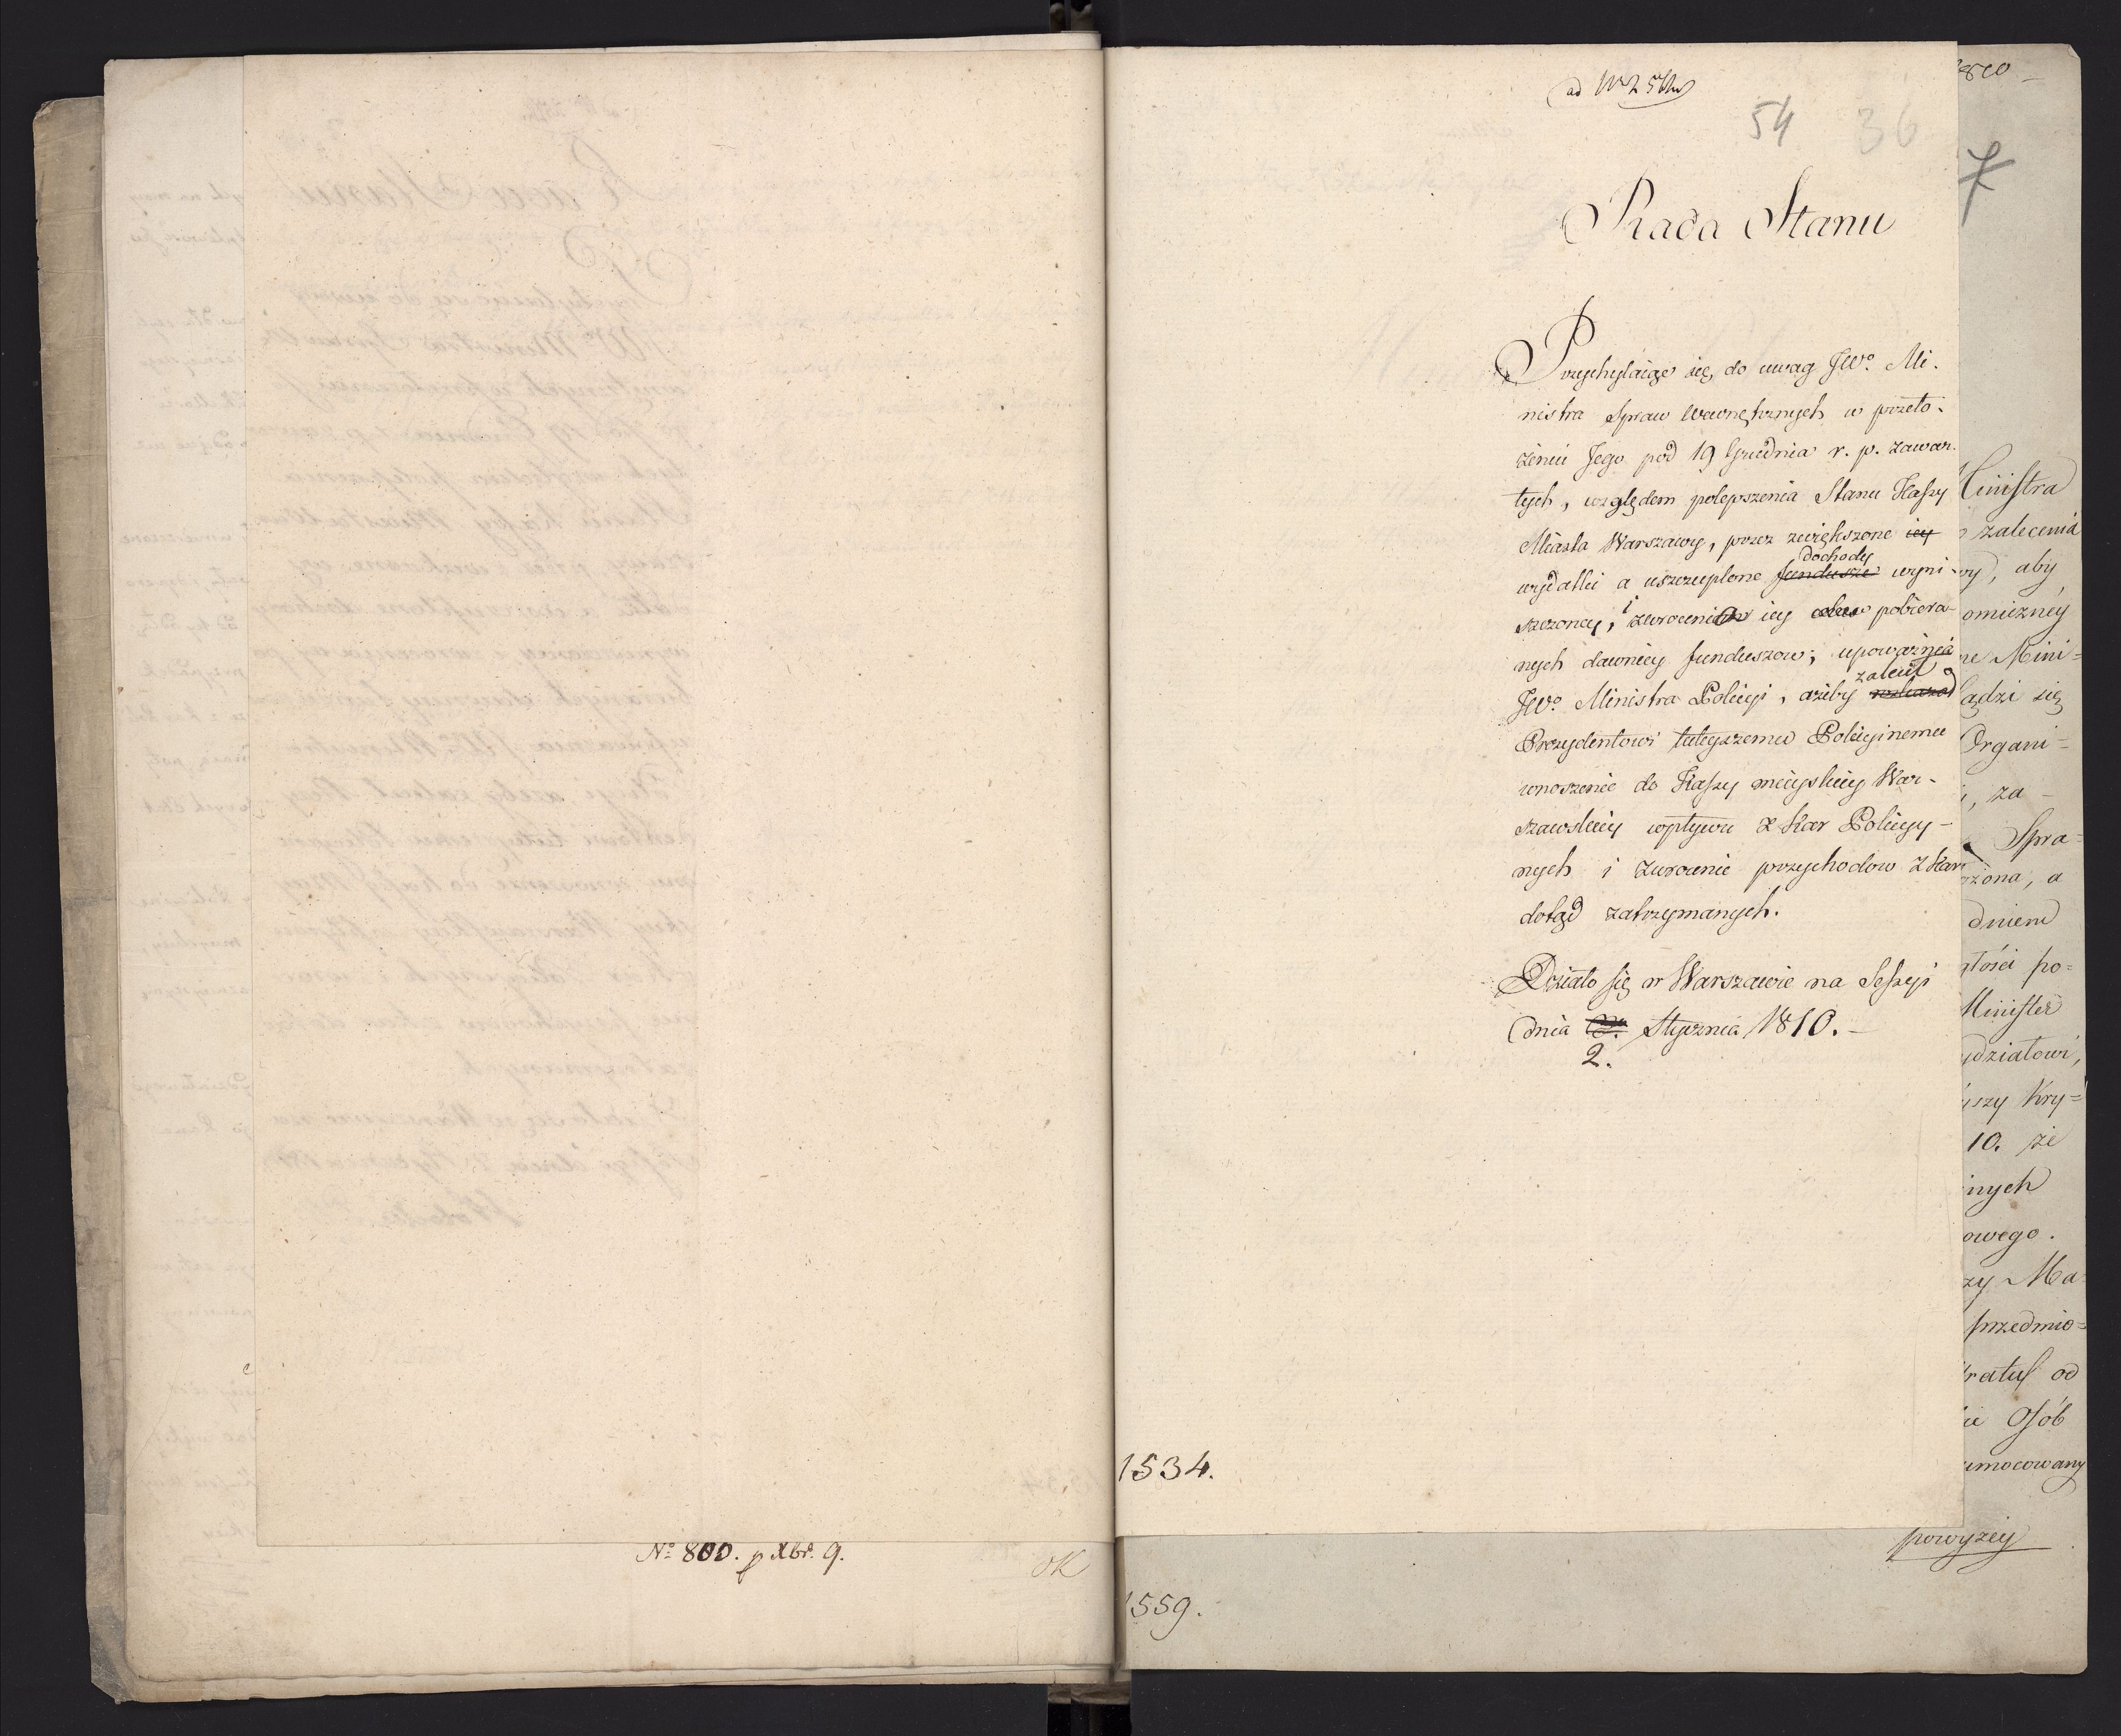 ad
54 36
Rada Stanu
Przychylaiąc się do uwag JWo. Mi-
nistra Spraw Wewnętrznych w przeło-
żeniu Jego pod 19 Grudnia r. p. zawar-
tych, względem polepszenia Stanu Kassy
Miasta Warszawy, przez zwiększone iey
dochody
wydatki a uszczuplone fundusze wyni-
szczoney, i zwrocenia iey pobiera-
nych dawniey funduszow; upoważnia
zalecił
JWo. Ministra Policyi, ażeby
Prezydentowi tuteyszemu Policyinemu
wnoszenie do Kassy mieyskiey War-
szawskiey wpływu z Kar Policyy-
nych i zwrocenie przychodow z Kar
dotąd zatrzymanych.
Działo się w Warszawie na Sessyi
dnia Stycznia 1810.
2.
1534.
No 800. p Xbr. 9.
OK
1559.
7
Ministra
zalecenia
aby
omiczney
Mini=
się
Organi=
za
Spra=
a
dniem
po=
Minister
Kry=
10. że
owego.
Ma
przedmio=
od
Osób
umocowany
powyzey